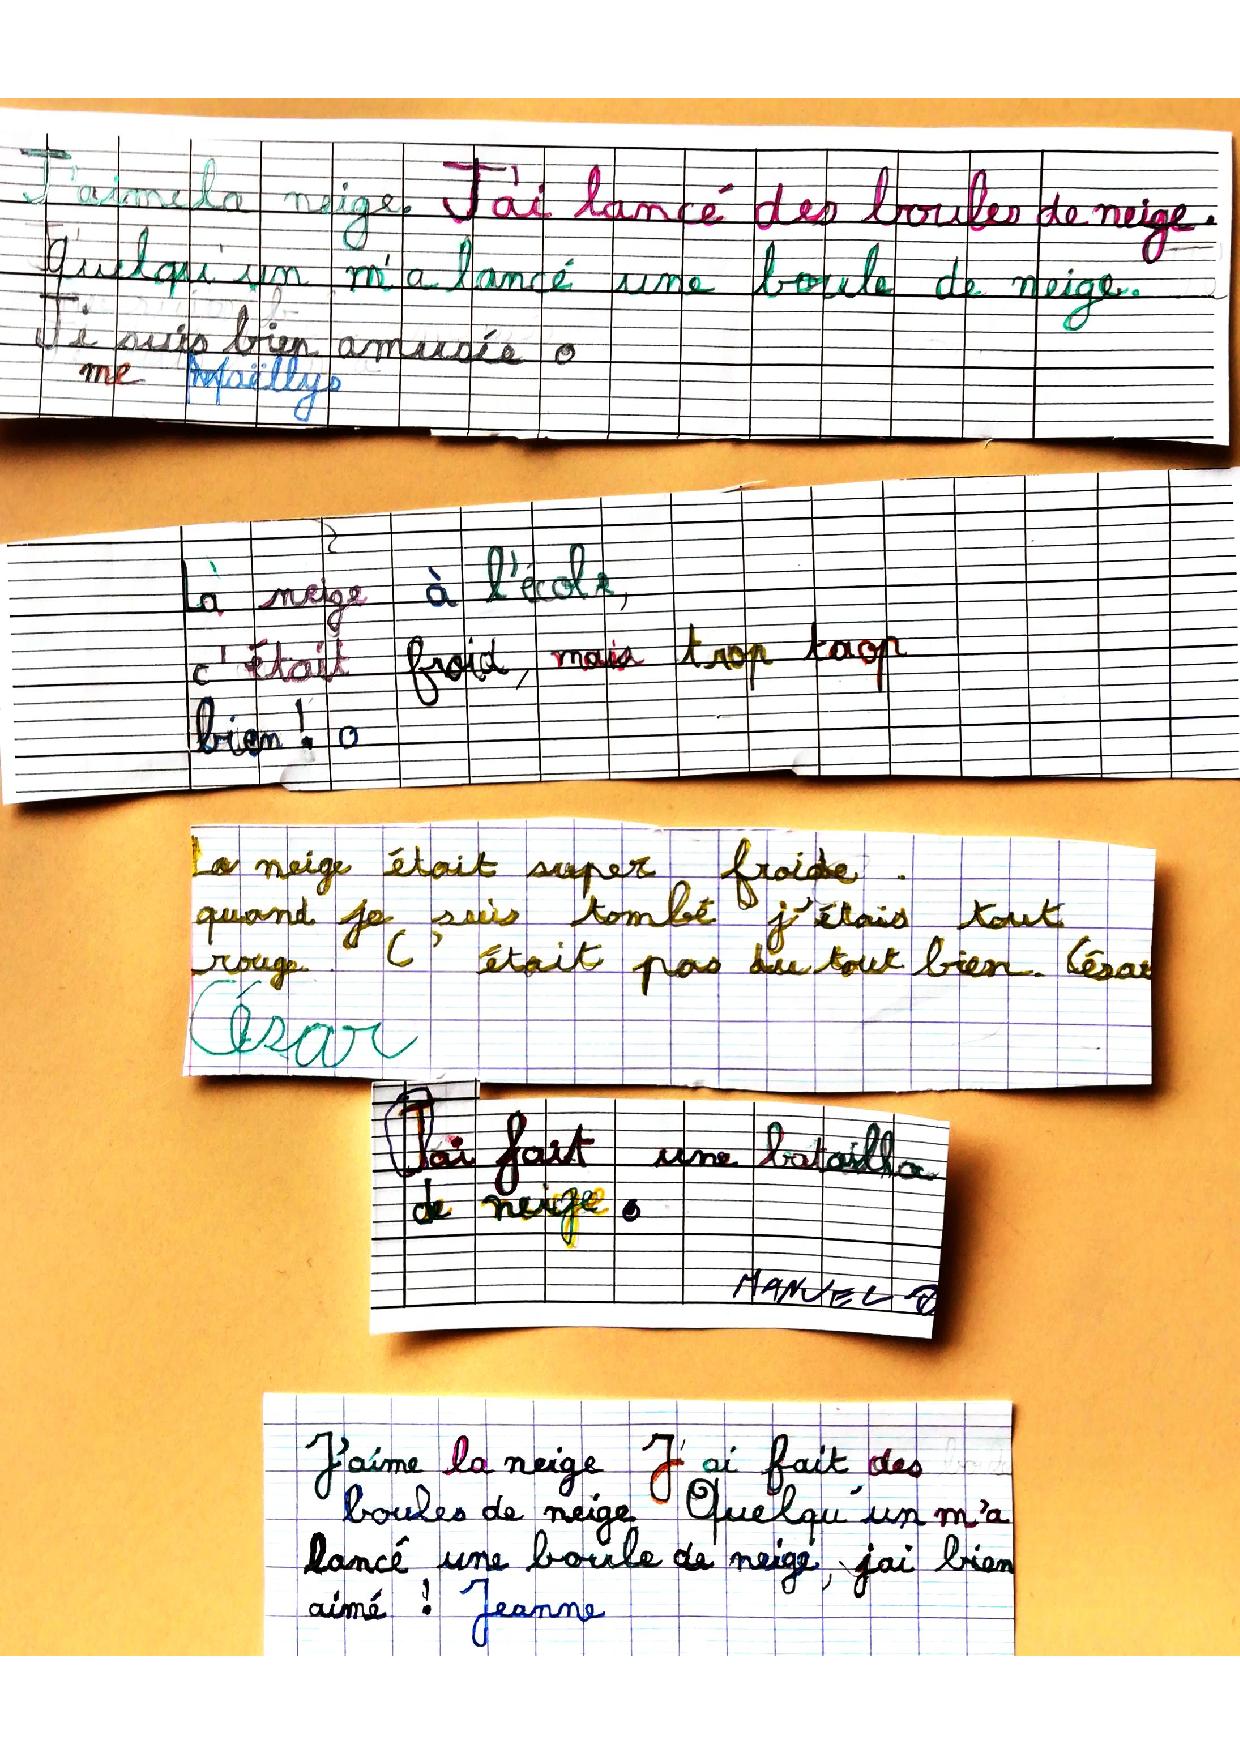 J'aime la neige. J'ai lancé des boules de neige.
quelqu'un m'a lancé une boule de neige.
Je suis bien amusée
me Maëllys
La neige à l'école,
c'était froid, mais trop trop
bien !
La neige était super froide.
quand je suis tombé j'étais tout
rouge. C'était pas du tout bien. César
César
J'ai fait une bataille
de neige.
MANUEL
J'aime la neige J'ai fait des
boules de neige Quelqu'un m'a
lancé une boule de neige, jai bien
aimé ! Jeanne